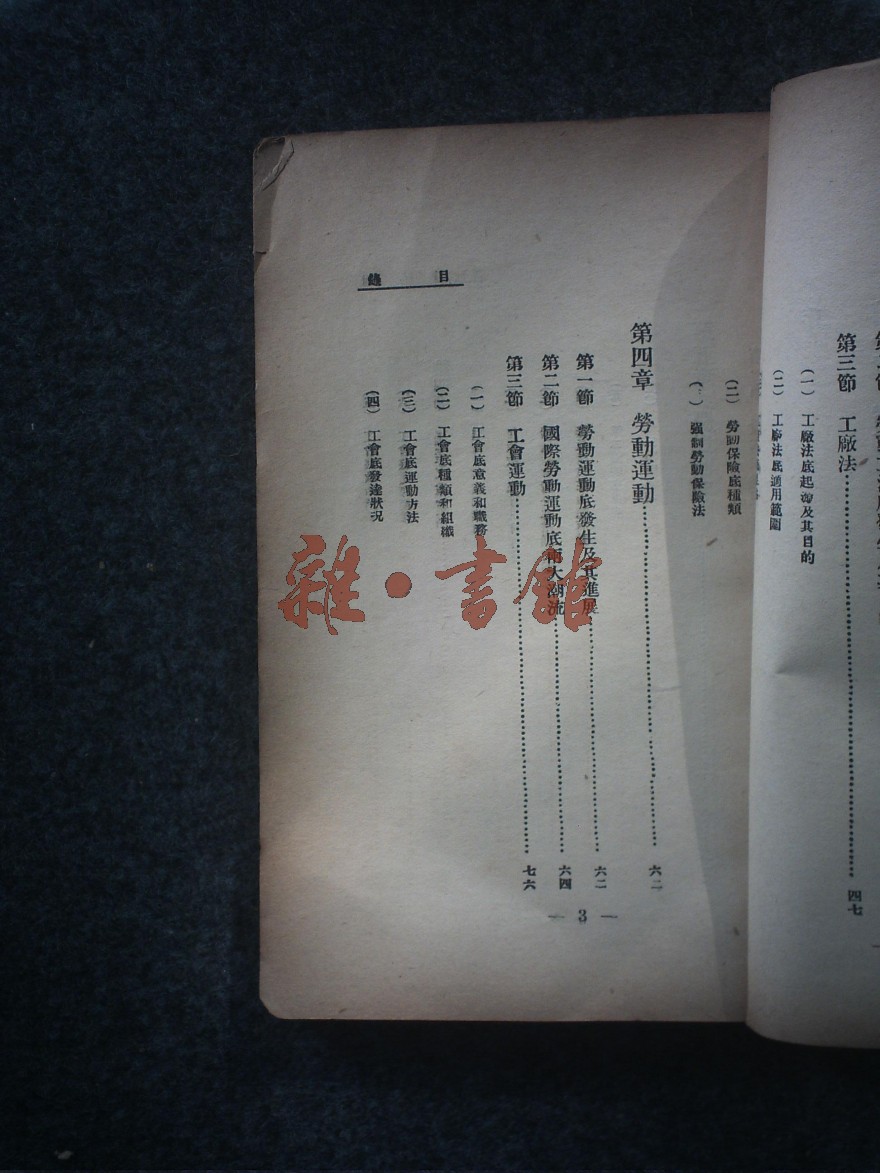 第三節 工廠法 四七
(一) 工廠法底起源及其目的
(二) 工廠法底適用範圍
目錄
(二) 勞動保險底種類
強制勞動保險法
第四章 勞動運動 六二
第一節 勞動運動底發生及其進展 六二
第二節 國際勞動運動底兩大潮流 六四
第三節 工會運動 七六
(一) 工會底意義和職務
(二) 工會底種類和組織
(三) 工會底運動方法
(四) 工會底發達狀況
— 3 —
雜·書館